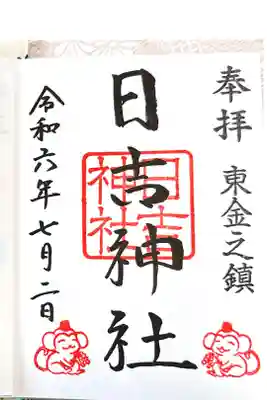 奉拝
東金之鎮
日吉神社
日吉神社
令和六年七月二日